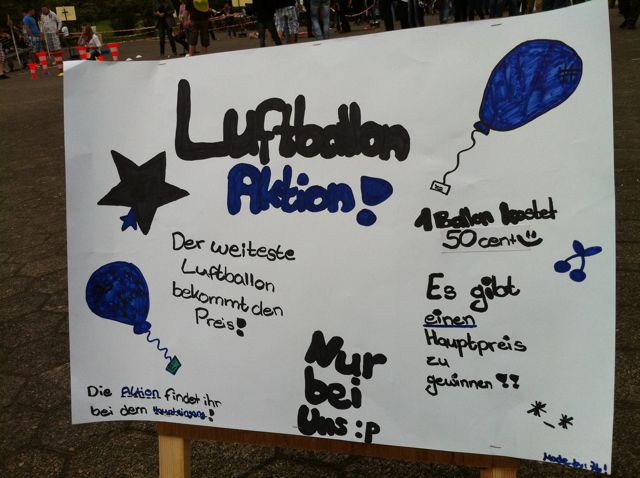 Luftballon
Aktion!
1 Ballon kostet
50 cent
Der weiteste
Luftballon
bekommt den
Preis!
Es gibt
einen
Hauptpreis
zu
gewinnen !!
Nur
bei
Uns :p
Die Aktion findet ihr
bei dem Haupteingang!
*_*
Made by: 7b!